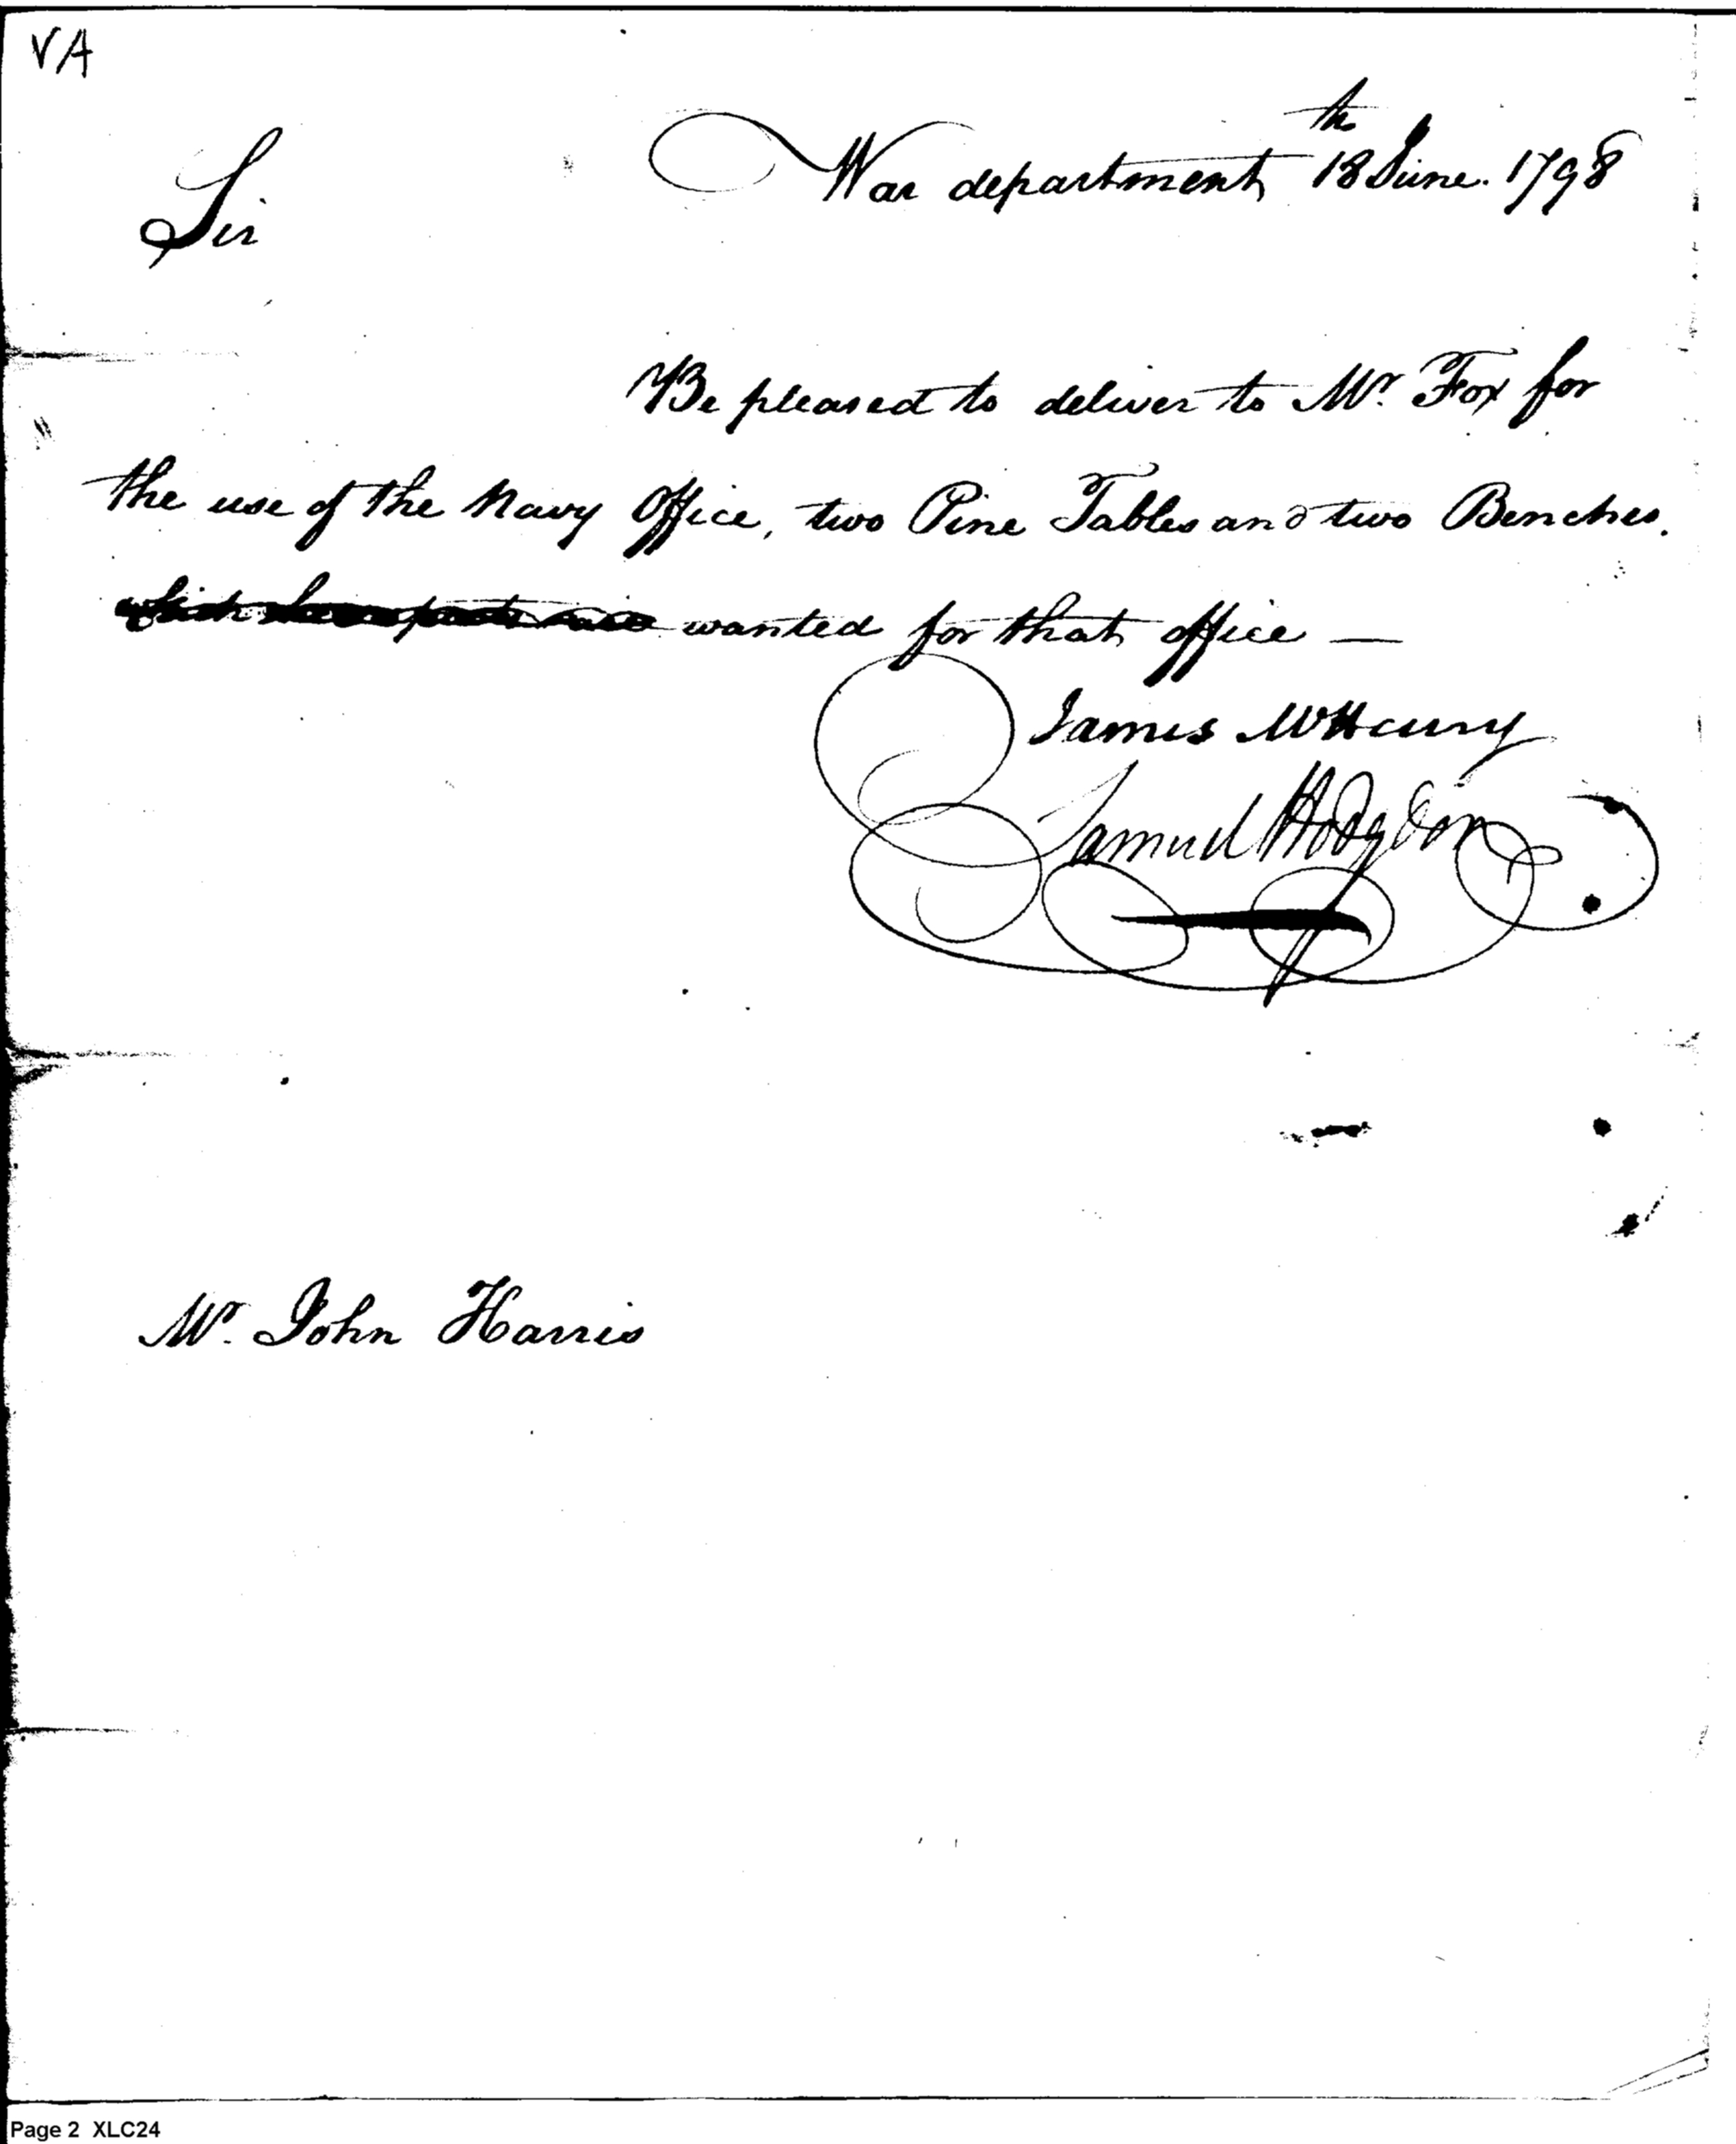 VA
War department 18th June. 1798
Sir
Be pleased to deliver to Mr. Fox for
the use of the Navy Office, two Pine Tables and two Benches.
wanted for that office —
James McHenry
Samuel Hodgdon
Mr. John Harris
Page 2 XLC24